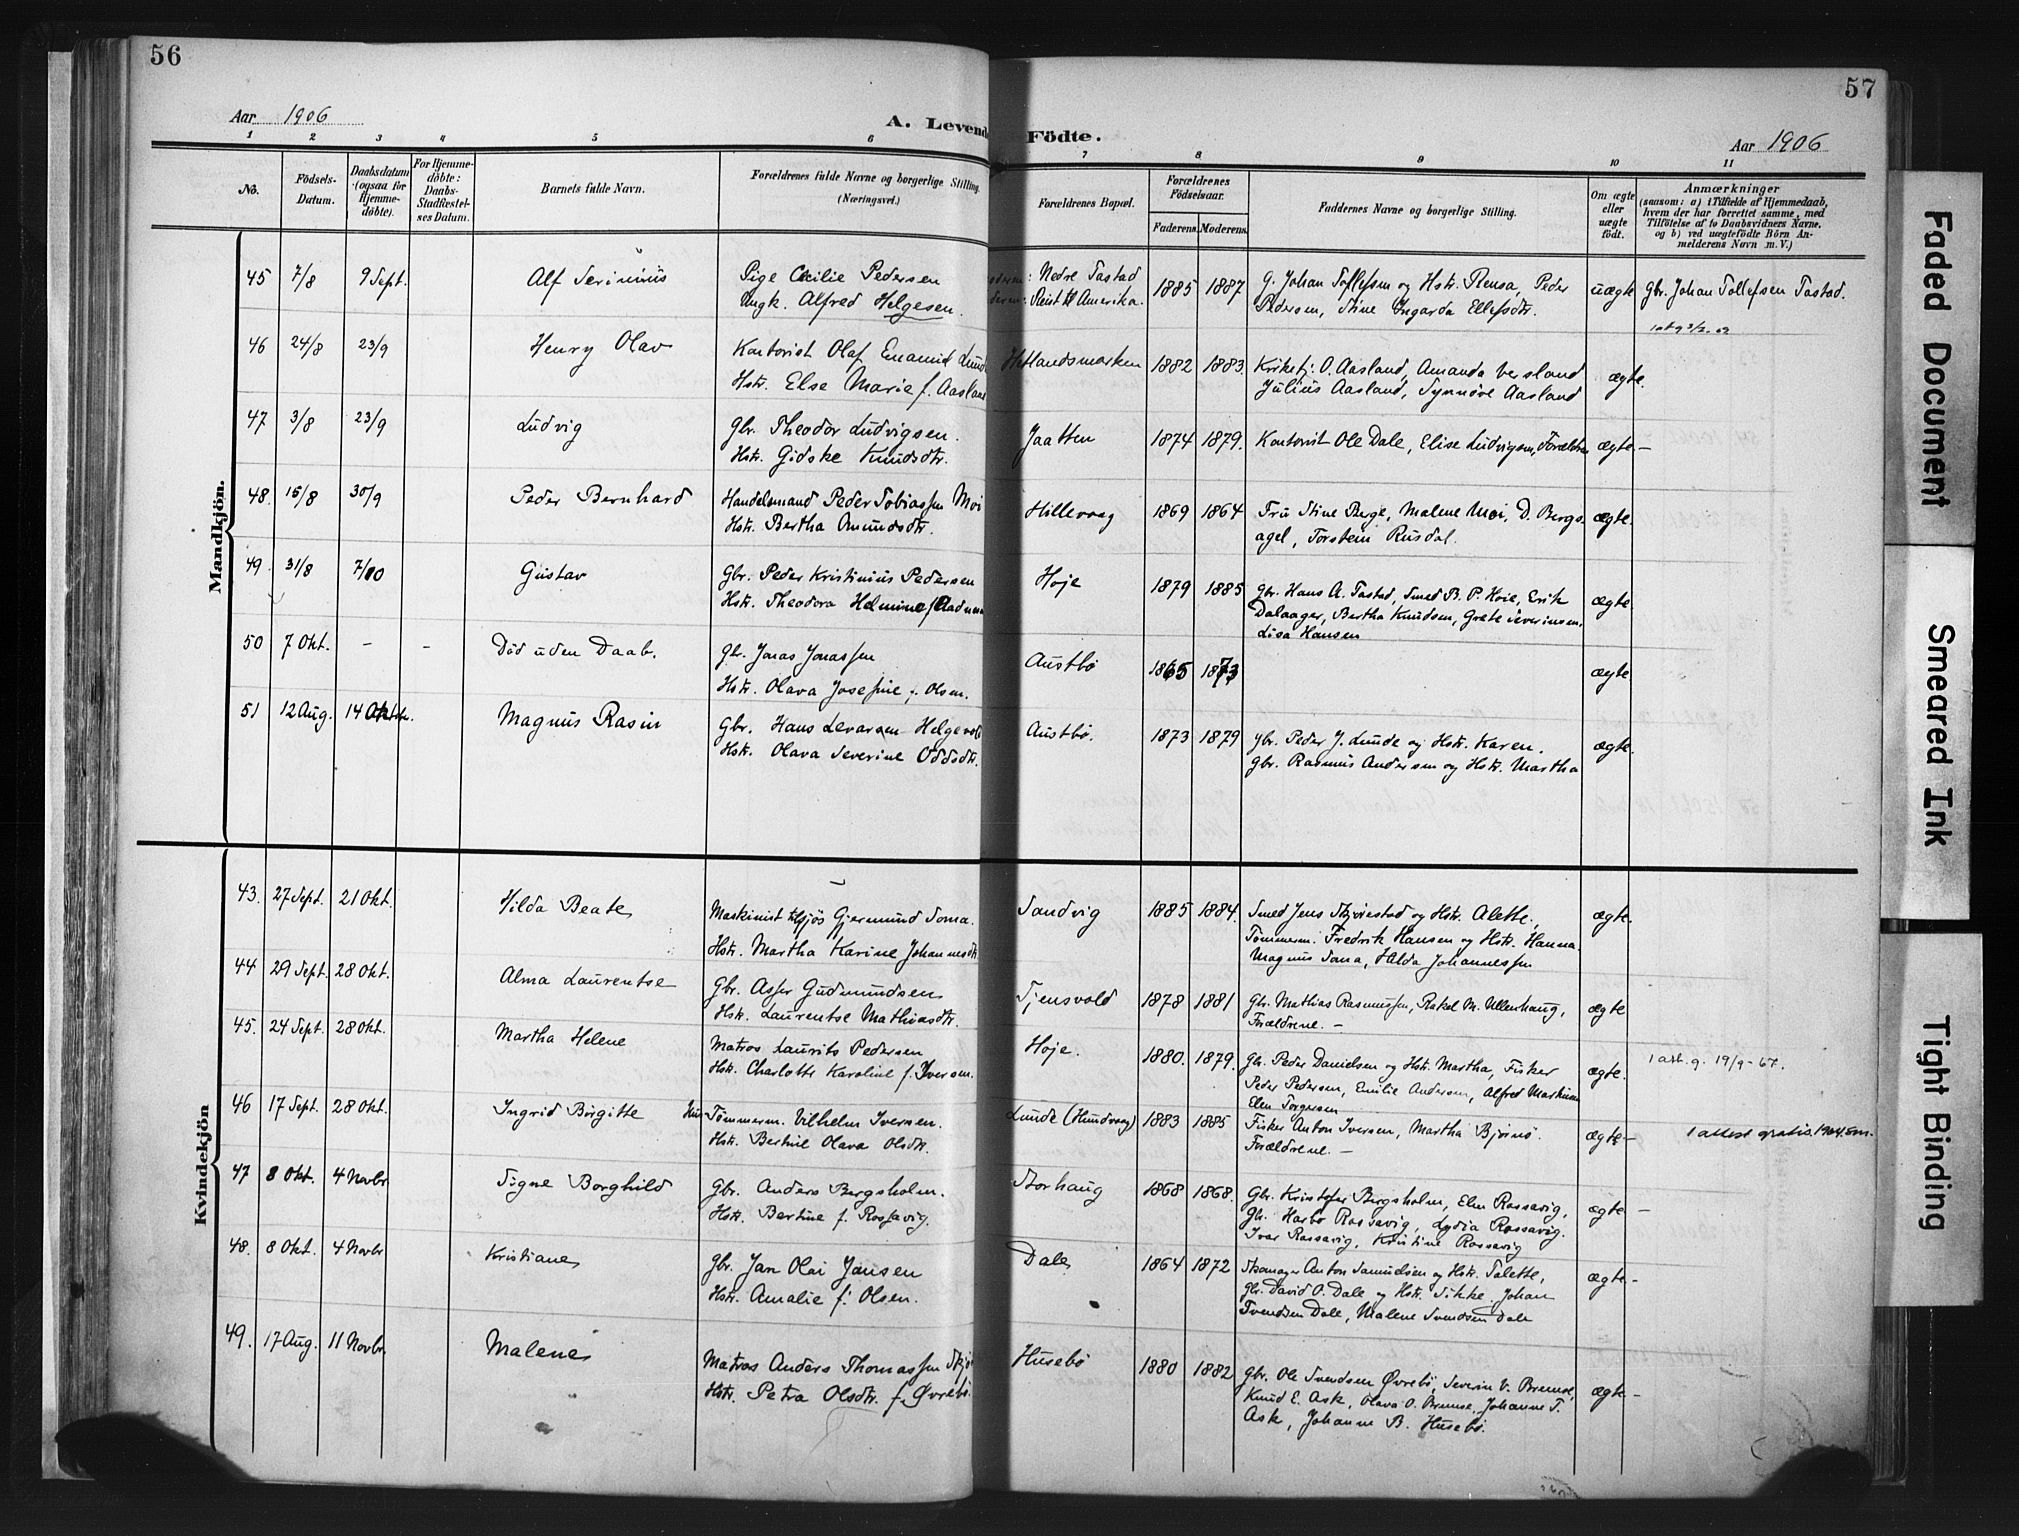 56
57
Aar 1906
A. Levende Födte.
Aar 1906
1 2 3 4 5 6 7 8 9 10 11
No.
Födsels-Datum.
Daabsdatum (ogsaa for Hjemmedöbte).
For Hjemmedöbte: Daabs-Stadfæstelses Datum.
Barnets fulde Navn.
Forældrenes fulde Navne og borgerlige Stilling. (Næringsvei.)
Forældrenes Bopæl.
Forældrenes Födselsaar.
Faderens. Moderens.
Faddernes Navne og borgerlige Stilling.
Om ægte eller uægte födt.
Anmærkninger
(saasom: a) i Tilfælde af Hjemmedaab, hvem der har forrettet samme, med Tilföielse af to Daabsvidners Navne, og b) ved uægtefödte Börn Anmelderens Navn m. V.)
Mandkjön.
45 7/8 9 Sept. Alf Serinius Pige Cecilie Pedersen : Nedre Tastad 1885 1887 G. Johan Tollefsen og Hstr. Rensa, Peder uægte Gbr. Johan Tollefsen Tastad.
Ungk. Alfred Helgesen. Reist til Amerika. Pedersen, Stine Ingarda Ellefsdtr.
46 24/8 23/9 Henry Olav Kontorist Olaf Enamid Lund Hetlandsmarken 1882 1883. Kirketj. O. Aasland, Amanda Versland ægte.
Hstr. Else Marie f. Aasland Julius Aasland, Synnöve Aasland
47 3/8 23/9 Ludvig Gbr. Theodor Ludvigsen. Jaatten 1874 1879. Kontorist Ole Dale, Elise Ludvigsen, Forældrene ægte.-
Hstr. Gidske Knudsdtr.
48. 15/8 30/9 Peder Bernhard Handelsmand Peder Tobiassen Moi Hillevaag 1869 1864 Fru Stine Berge, Malene Moi, D. Bergs- ægte.
Hstr. Bertha Amundsdtr. agel, Torstein Rusdal.
49. 31/8 7/10 Gustav Gbr. Peder Kristinius Pedersen Hoje 1879 1885 Gbr. Hans A. Tastad, Smed B. P. Hoie, Erik ægte.
Hstr. Theodora Helmine f. Dalaager, Bertha Knudsen, Grete Severinsen,
Lisa Hansen
50 7 Okt. - - Död uden Daab. Gbr. Jonas Jonassen Austbö 1865 1873 ægte.
Hstr. Olava Josefine f. Olsen.
51 12 Aug. 14 Oktbr. Magnus Rasin Gbr. Hans Levarsen Helgevold Austbö. 1873 1879 Gbr. Peder J. Lunde og Hstr. Karen. ægte.
Hstr. Olava Severine Oddsdtr. Gbr. Rasmus Andersen og Hstr. Martha
Kvindekjön
43. 27 Sept. 21 Okt. Hilda Beate Maskinist tilsjös Gjermund Soma. Sandvig 1885 1884. Smed Jens Skjörestad og Hstr. Alette, ægte.
Hstr. Martha Karine Johannesdtr. Tömmerm. Fredrik Hansen og Hstr. Hanna
Magnus Soma, Hilda Johannessen
44 29 Sept. 28 Okt. Alma Laurentse Gbr. Asser Gudmundsen Tjensvold 1878 1881 Gbr. Mathias Rasmussen, Rakel M. Ullenhaug, ægte
Hstr. Laurentse Mathiasdtr. Forældrene. -
45. 24 Sept. 28 Okt. Martha Helene Matros Laurits Pedersen Hoje. 1880. 1879. Gbr. Peder Danielsen og Hstr. Martha, Fisker ægte. 1 att. g. 19/9-67.
Hstr. Charlotte Karoline f. Iversen. Peder Pedersen, Emilie Andersen, Alfred Markussen
Elen Torgersen
46 17 Sept. 28 Okt. Ingrid Birgitte Tömmerm. Vilhelm Iversen. Lunde (Hundvaag) 1883 1885 Fisker Anton Iversen, Martha Björnö. ægte- 1 attest gratis.
Hstr. Bertine Olava Olsdtr. Forældrene. -
47 8 Okt. 4 Novbr Signe Borghild Gbr. Anders Bergsholm. Storhaug 1868 1868. Gbr. Kristofer Bergsholm, Elen Rossavig, ægte -
Hstr. Bertine f. Rossavig. Gbr. Harbo Rossavig, Lydia Rossavig.
Ivar Rossavig, Kristine Rossavig
48. 8 Okt. 4 Novbr Kristiane Gbr. Jan Olai Jansen Dale 1864 1872 Skomager Anton Samuelsen og Hstr. Talette, ægte -
Hstr. Amalie f. Olsen. Gbr. David O. Dale og Hstr. Sikke. Johan
Svendsen Dale, Malene Svendsen Dale
49. 17 Aug. 11 Novbr. Malene Matros Anders Thomassen Husebö 1880 1882 Gbr. Ole Svendsen Övrebö, Severin V. Bremse, ægte -
Hstr. Petra Olsdtr. f. Övrebö. Knud E. Ask, Olava O. Bremse, Johanne T.
Ask, Johanne B. Husebö.
Faded Document
Smeared Ink
Tight Binding